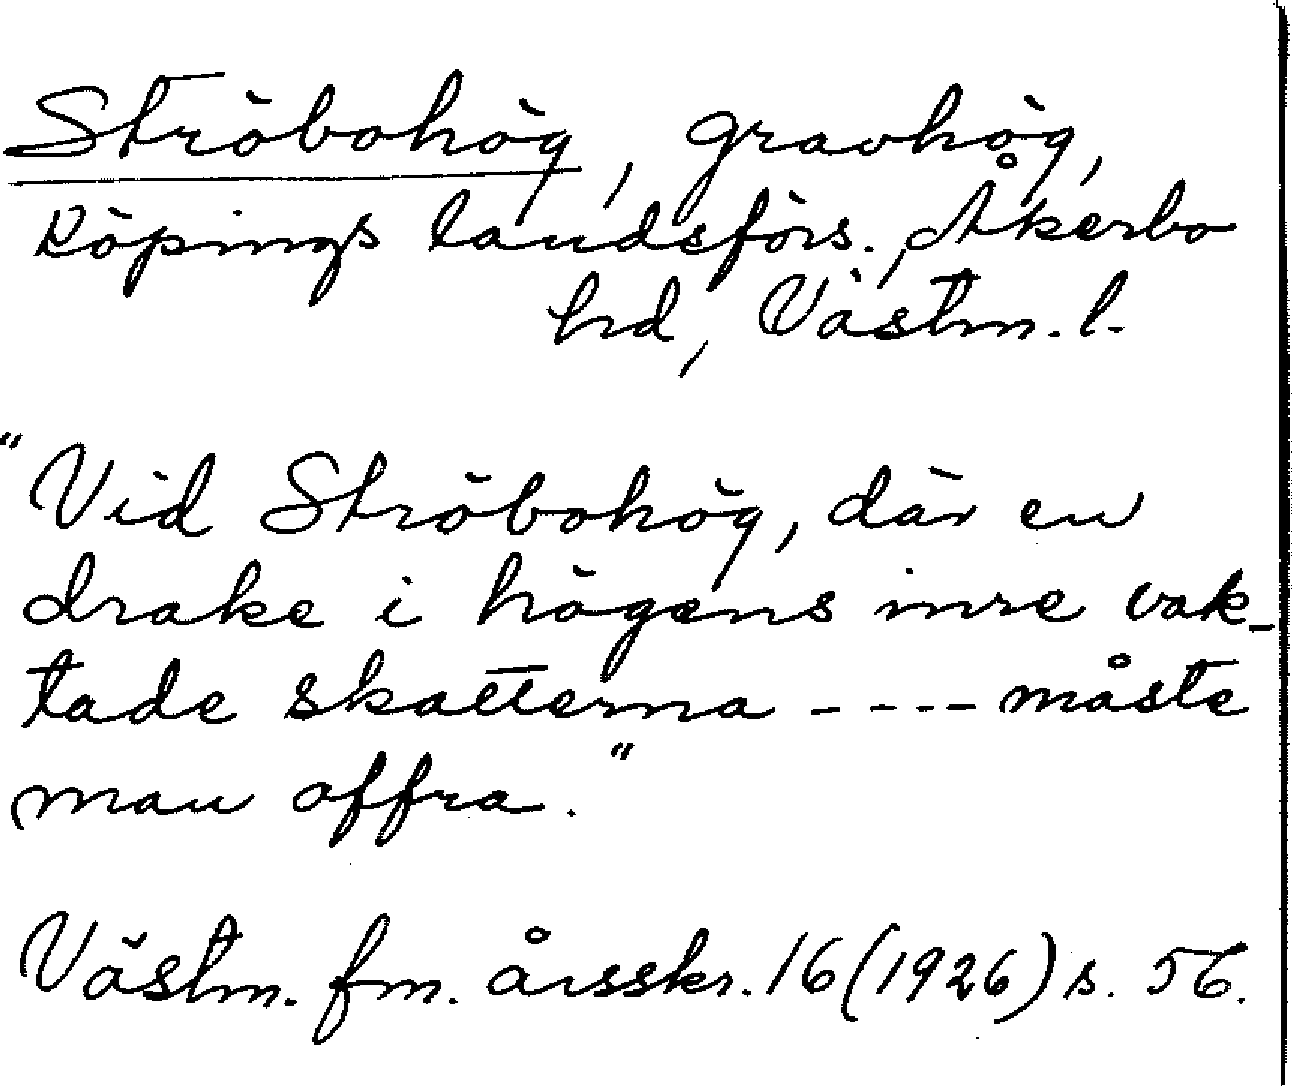 Ströbohög, gravhög,
Köpings landsförs., Åkerbo
hd, Västm. l.
"Vid Ströbohög, där en
drake i högens inre vak-
tade skatterna ---- måste
man offra."
Västm. fm. årsskr. 16 (1926) s. 56.